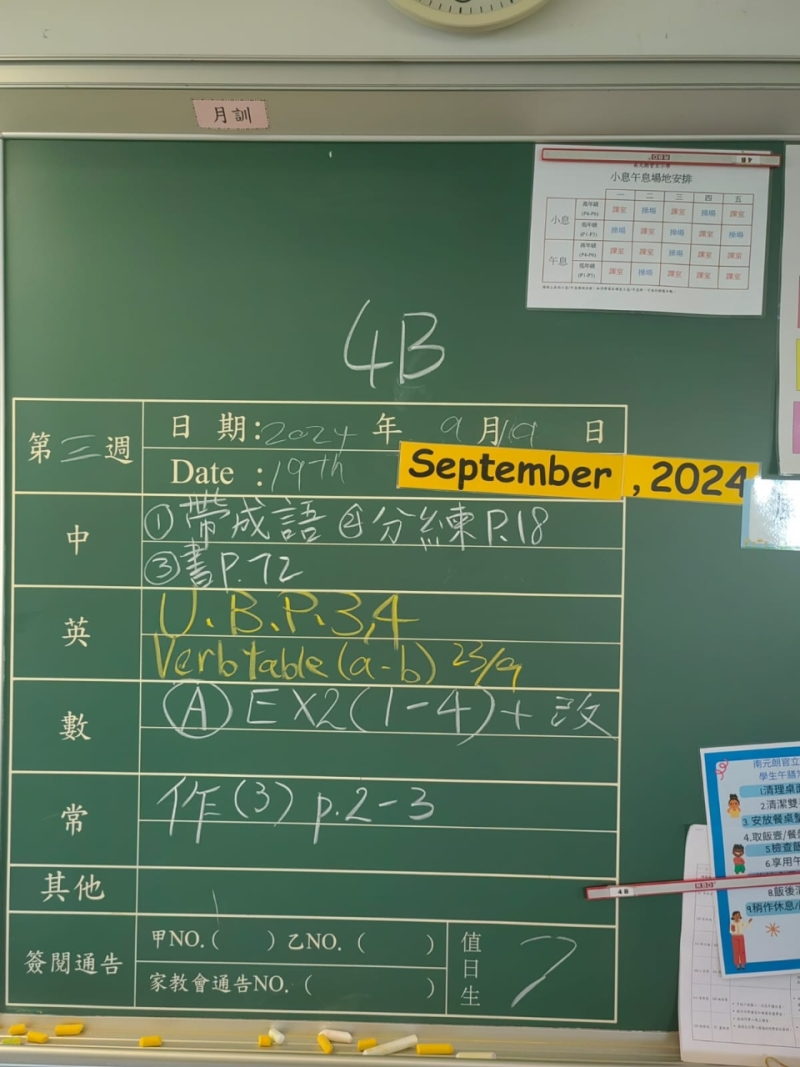 月訓
小息午息場地安排
一 二 三 四 五
小息 高年級 (P4-P6) 課室 操場 課室 操場 課室
低年級 (P1-P3) 操場 課室 操場 課室 操場
午息 高年級 (P4-P6) 課室 課室 操場 課室 課室
低年級 (P1-P3) 課室 操場 課室 課室 課室
4B
第三週 日期:2024年9月19日
Date :19th September , 2024
中 ①帶成語 ②分練P.18
③書P.72
英 U.B.P.3,4
Verb table (a-b) 23/9
數 Ⓐ EX2(1-4)+改
常 作(3) p.2-3
其他
簽閱通告 甲NO.( ) 乙NO.( )
家教會通告NO.( )
值日生 7
南元朗官立
學生午膳
1清理桌面
2清潔雙
3.安放餐桌墊
4.取飯壺/餐
5檢查飯
6.享用午
8.飯後清
9.稍作休息/
4B